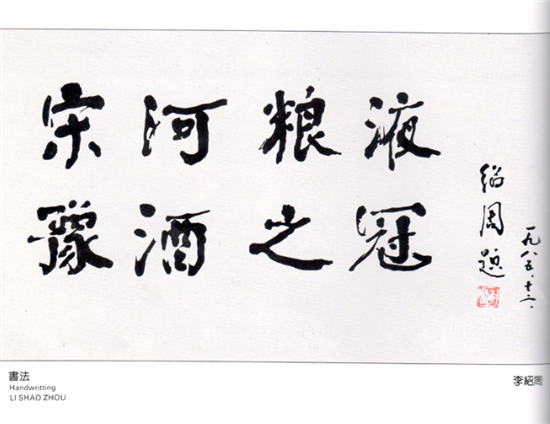 宋河粮液
豫酒之冠
绍周题
一九八五.十二.
書法
Handwritting
LI SHAO ZHOU
李紹周